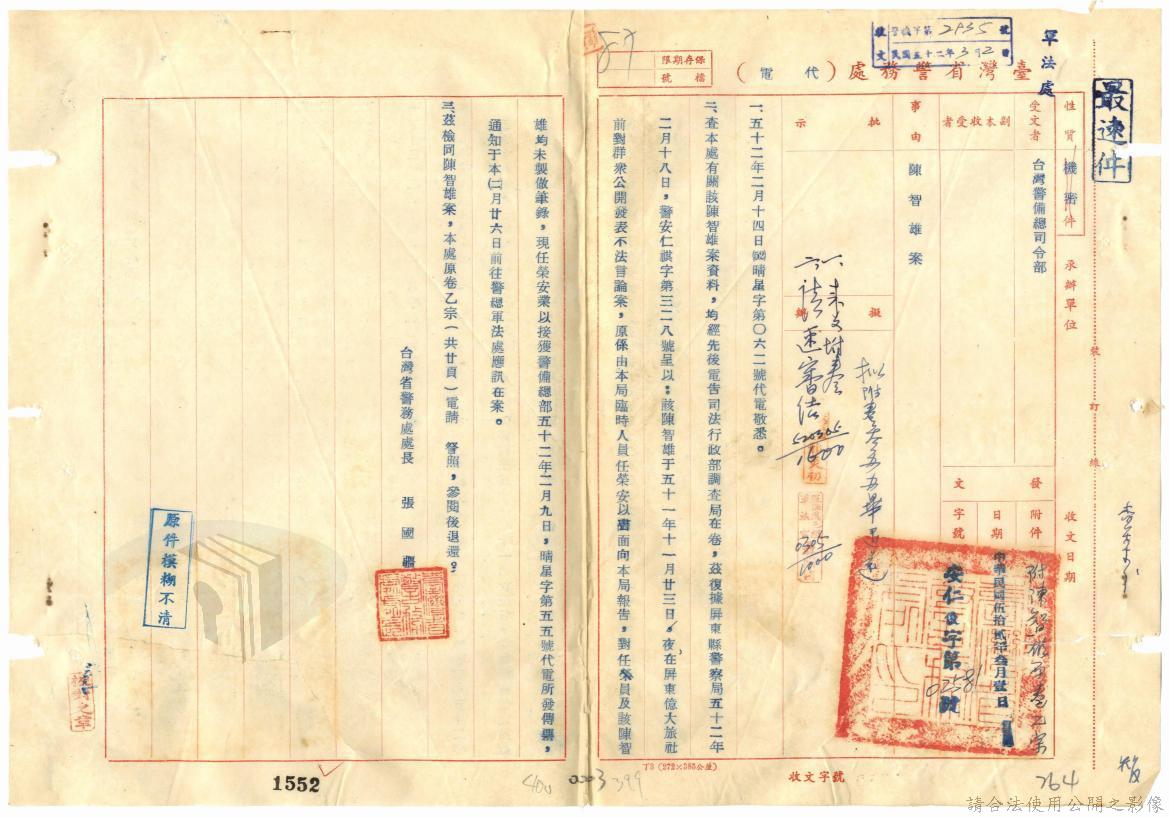 最速件
軍法處
收文 警機字第2935號
民國五十二年3月2日
保存期限
檔號
臺灣省警務處（代電）
性質 機密件
承辦單位
裝訂線
受文者 台灣警備總司令部
副本收受者
收文日期
發文
附件
日期 中華民國伍拾貳年叁月壹日
字號 安仁 字第02581號
事由 陳智雄案
批示
擬辦
一、來文附卷
二、請速審結
一、五十二年二月十四日㈤晴星字第〇六二號代電敬悉。
二、查本處有關該陳智雄案資料，均經先後電告司法行政部調查局在卷，茲復據屏東縣警察局五十二年
二月十八日，警安仁祺字第三二八號呈以：該陳智雄于五十一年十一月廿三日，夜在屏東億大旅社
前對群衆公開發表不法言論案，原係由本局臨時人員任榮安以書面向本局報告，對任榮員及該陳智
雄均未製做筆錄，現任榮安業以接獲警備總部五十二年二月九日，晴星字第五五號代電所發傳票，
通知于本㈡月廿六日前往警總軍法處應訊在案。
三、茲檢同陳智雄案，本處原卷乙宗（共廿頁）電請 詧照，參閱後退還。
台灣省警務處處長 張國疆
原件模糊不清
1552
400
0003
399
T3（272×385公釐）
收文字號
764
請合法使用公開之影像